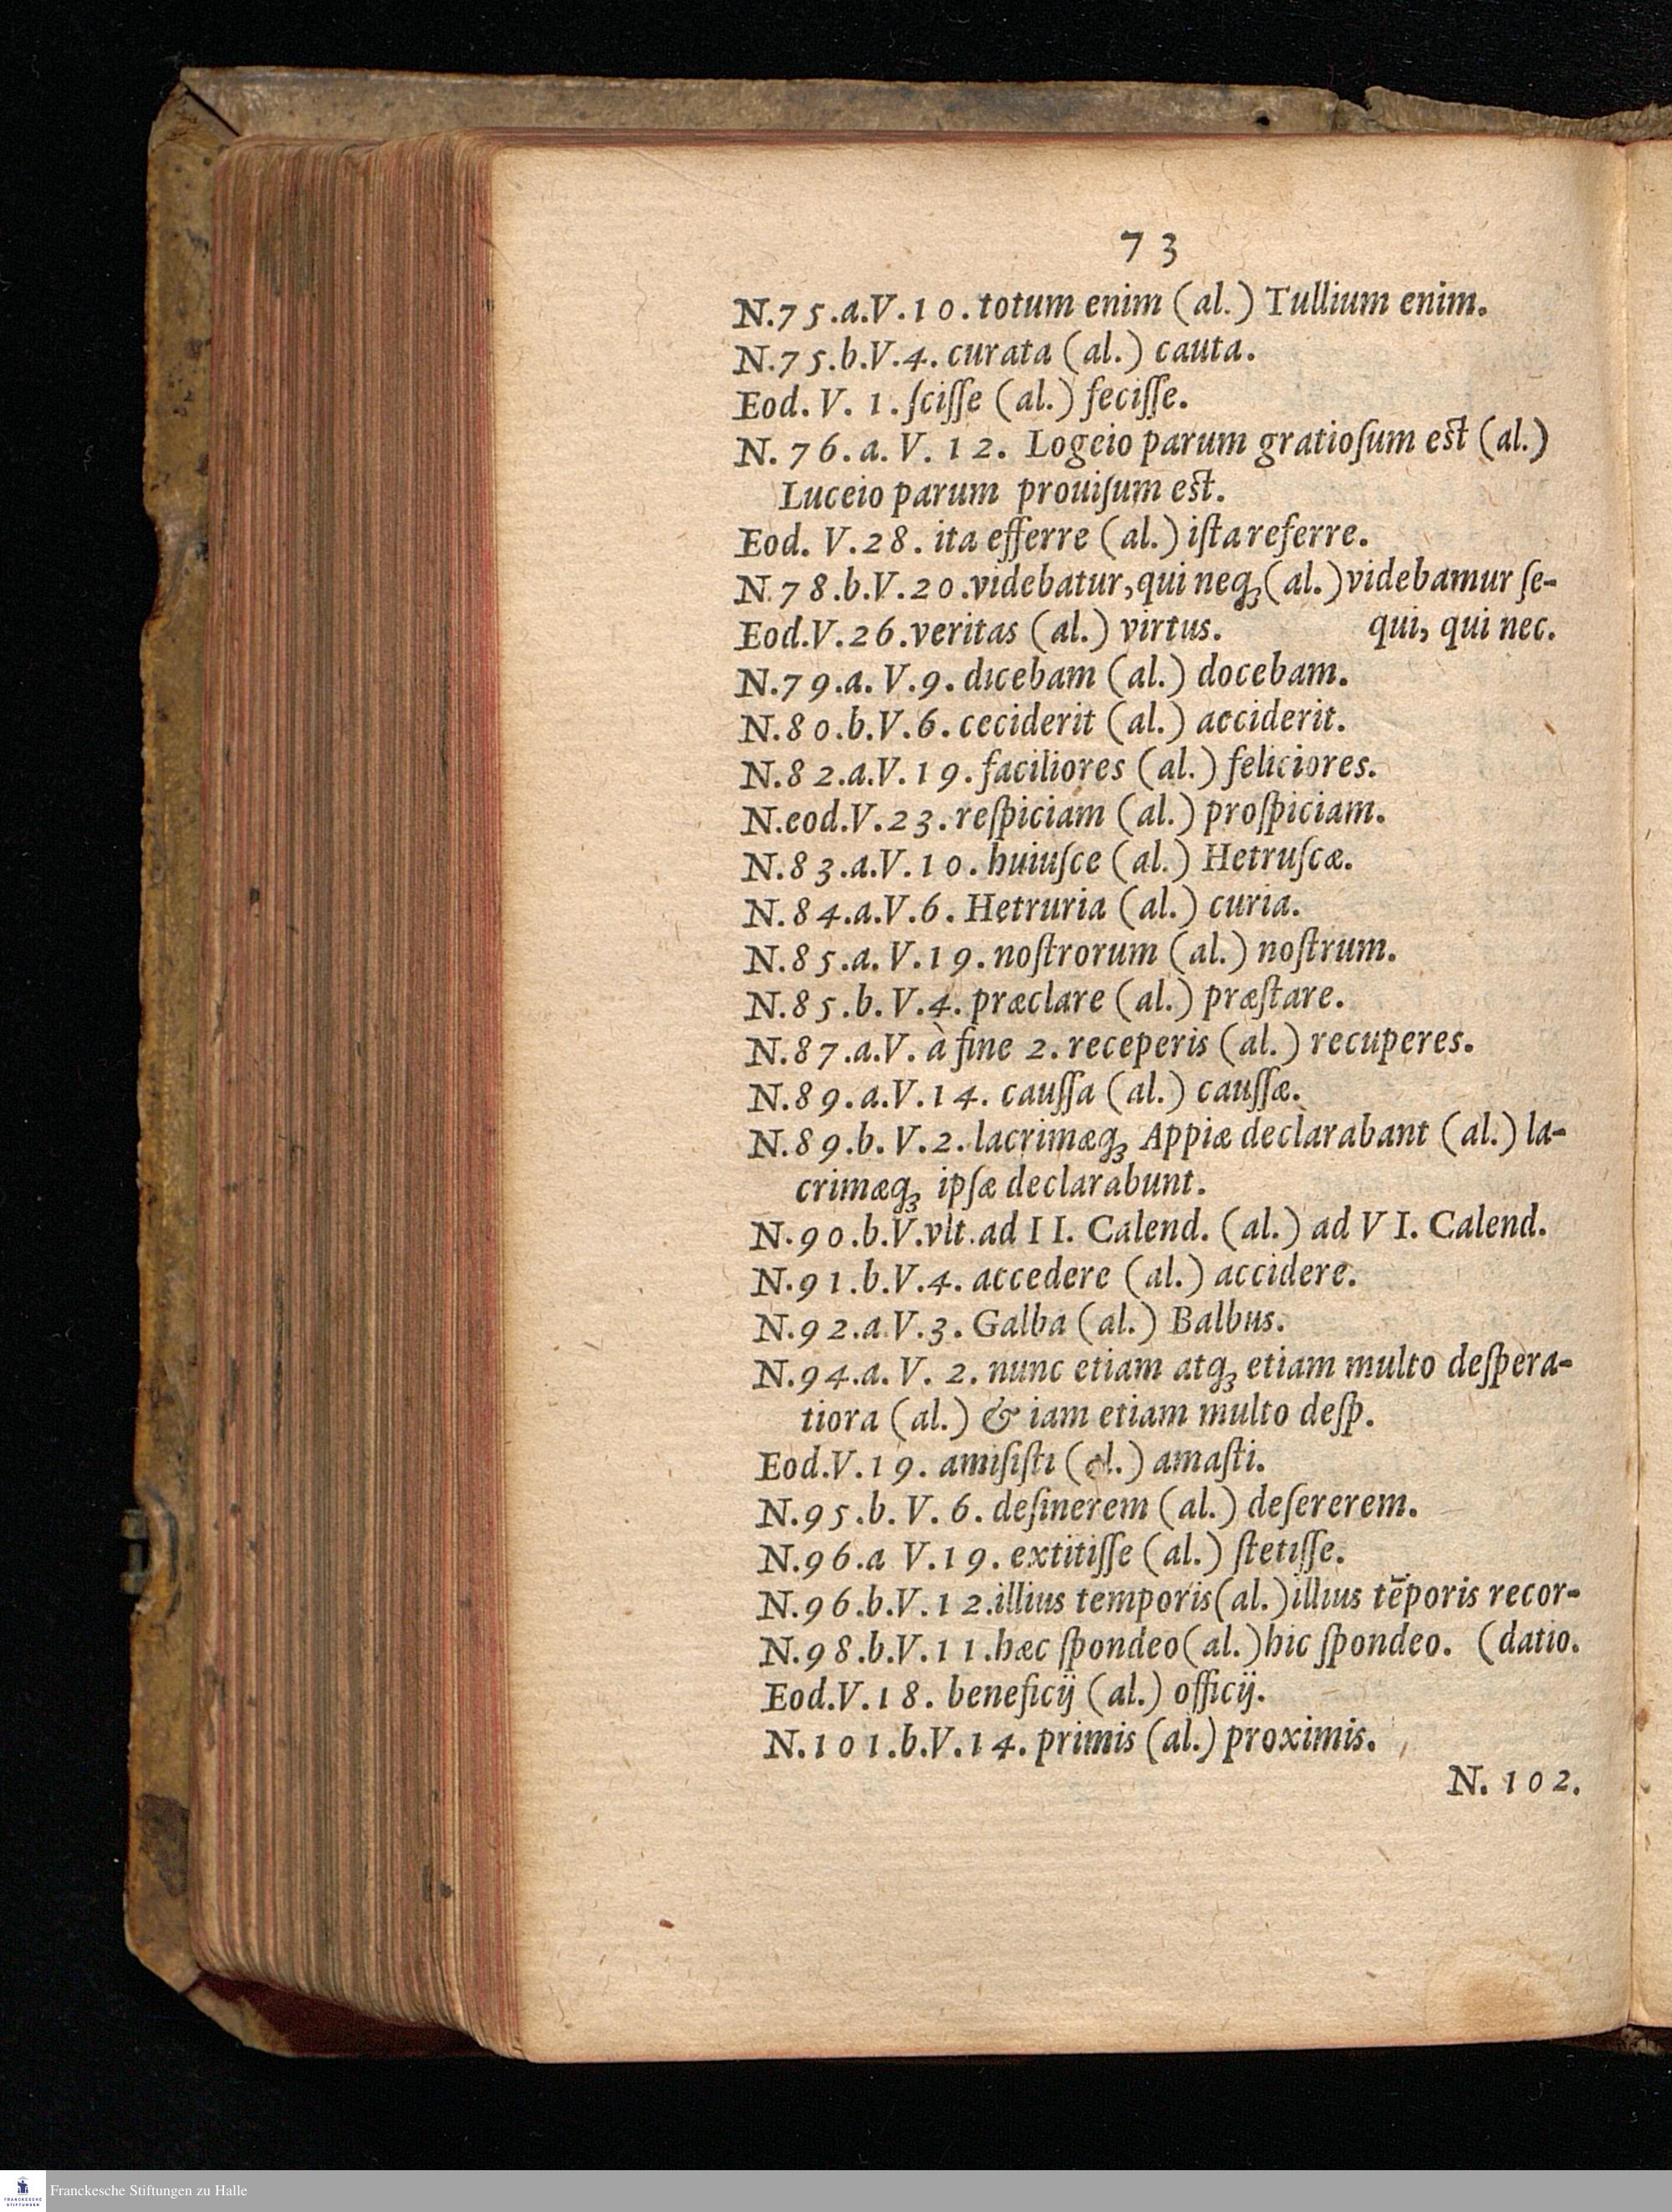 73
N.75.a.V.10. totum enim (al.) Tullium enim.
N.75.b.V.4. curata (al.) cauta.
Eod. V. 1. ſciſſe (al.) feciſſe.
N. 76. a. V. 12. Logeio parum gratioſum eſt (al.)
Luceio parum prouiſum eſt.
Eod. V.28. ita efferre (al.) iſta referre.
N.78.b.V.20.videbatur, qui neqꝫ (al.) videbamur ſe-
Eod.V.26.veritas (al.) virtus. qui, qui nec.
N.79.a. V.9. dicebam (al.) docebam.
N.80.b.V.6. ceciderit (al.) acciderit.
N.82.a.V.19. faciliores (al.) feliciores.
N.eod.V.23. reſpiciam (al.) proſpiciam.
N.83.a.V.10. huiuſce (al.) Hetruſcæ.
N.84.a.V.6. Hetruria (al.) curia.
N.85.a. V.19. noſtrorum (al.) noſtrum.
N.85.b. V.4. præclare (al.) præſtare.
N.87.a.V. à fine 2. receperis (al.) recuperes.
N.89.a.V.14. cauſſa (al.) cauſſæ.
N.89.b. V.2. lacrimæqꝫ Appiæ declarabant (al.) la-
crimæqꝫ ipſæ declarabunt.
N.90.b.V.vlt.ad II. Calend. (al.) ad VI. Calend.
N.91.b.V.4. accedere (al.) accidere.
N.92.a.V.3. Galba (al.) Balbus.
N.94.a. V. 2. nunc etiam atqꝫ etiam multo deſpera-
tiora (al.) & iam etiam multo deſp.
Eod.V.19. amiſiſti (al.) amaſti.
N.95.b. V. 6. deſinerem (al.) deſererem.
N.96.a V.19. extitiſſe (al.) ſtetiſſe.
N.96.b.V.12.illius temporis (al.) illius tēporis recor-
N.98.b.V.11.hæc ſpondeo (al.) hic ſpondeo. (datio.
Eod.V.18. beneficij (al.) officij.
N.101.b.V.14. primis (al.) proximis.
N. 102.
Franckesche Stiftungen zu Halle